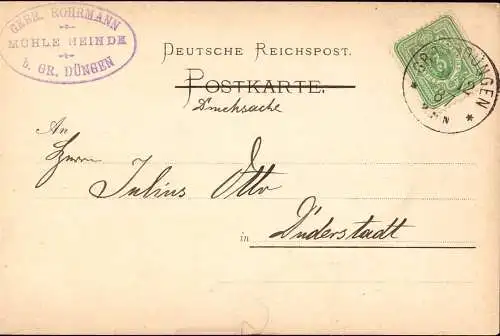 GEBR. ROHRMANN
MÜHLE HEINDE
b. GR. DÜNGEN
DEUTSCHE REICHSPOST.
POSTKARTE.
Drucksache
GR. DÜNGEN
An
Herrn Julius Otto
in Duderstadt